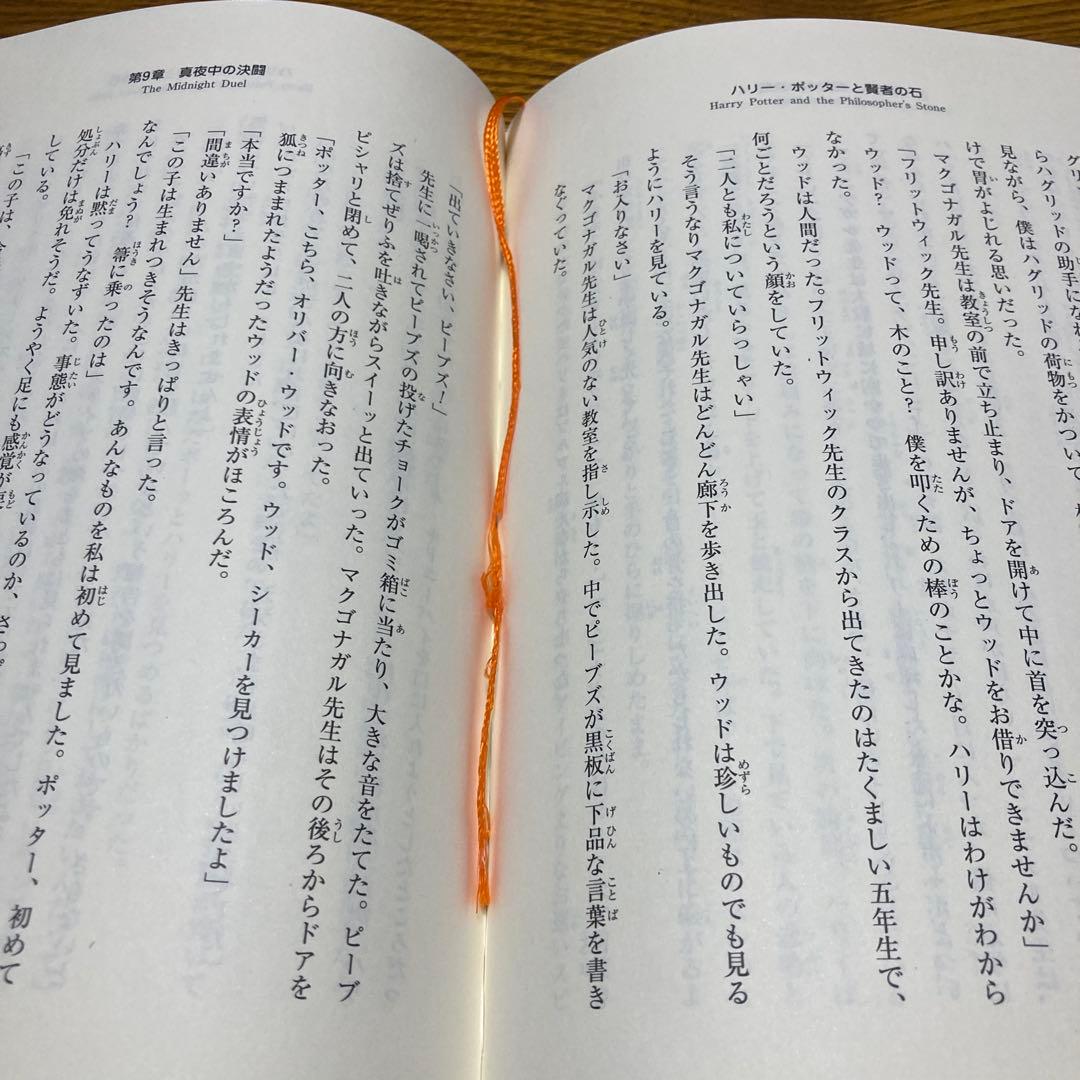 ハリー・ポッターと賢者の石
Harry Potter and the Philosopher's Stone
らハグリッドの助手になれ
見ながら、僕はハグリッドの荷物をかついで、
けで胃がよじれる思いだった。
マクゴナガル先生は教室の前で立ち止まり、ドアを開けて中に首を突っ込んだ。
「フリットウィック先生。申し訳ありませんが、ちょっとウッドをお借りできませんか」
ウッド? ウッドって、木のこと? 僕を叩くための棒のことかな。ハリーはわけがわから
なかった。
ウッドは人間だった。フリットウィック先生のクラスから出てきたのはたくましい五年生で、
何ごとだろうという顔をしていた。
「二人とも私についていらっしゃい」
そう言うなりマクゴナガル先生はどんどん廊下を歩き出した。ウッドは珍しいものでも見る
ようにハリーを見ている。
「お入りなさい」
マクゴナガル先生は人気のない教室を指し示した。中でピーブズが黒板に下品な言葉を書き
なぐっていた。
第9章 真夜中の決闘
The Midnight Duel
「出ていきなさい、ピーブズ!」
先生に一喝されてピーブズの投げたチョークがゴミ箱に当たり、大きな音をたてた。ピーブ
ズは捨てぜりふを吐きながらスイーッと出ていった。マクゴナガル先生はその後ろからドアを
ピシャリと閉めて、二人の方に向きなおった。
「ポッター、こちら、オリバー・ウッドです。ウッド、シーカーを見つけましたよ」
狐につままれたようだったウッドの表情がほころんだ。
「本当ですか?」
「間違いありません」先生はきっぱりと言った。
「この子は生まれつきそうなんです。あんなものを私は初めて見ました。ポッター、初めて
なんでしょう? 箒に乗ったのは」
ハリーは黙ってうなずいた。事態がどうなっているのか、さっ
処分だけは免れそうだ。ようやく足にも感覚が
している。
「この子は、